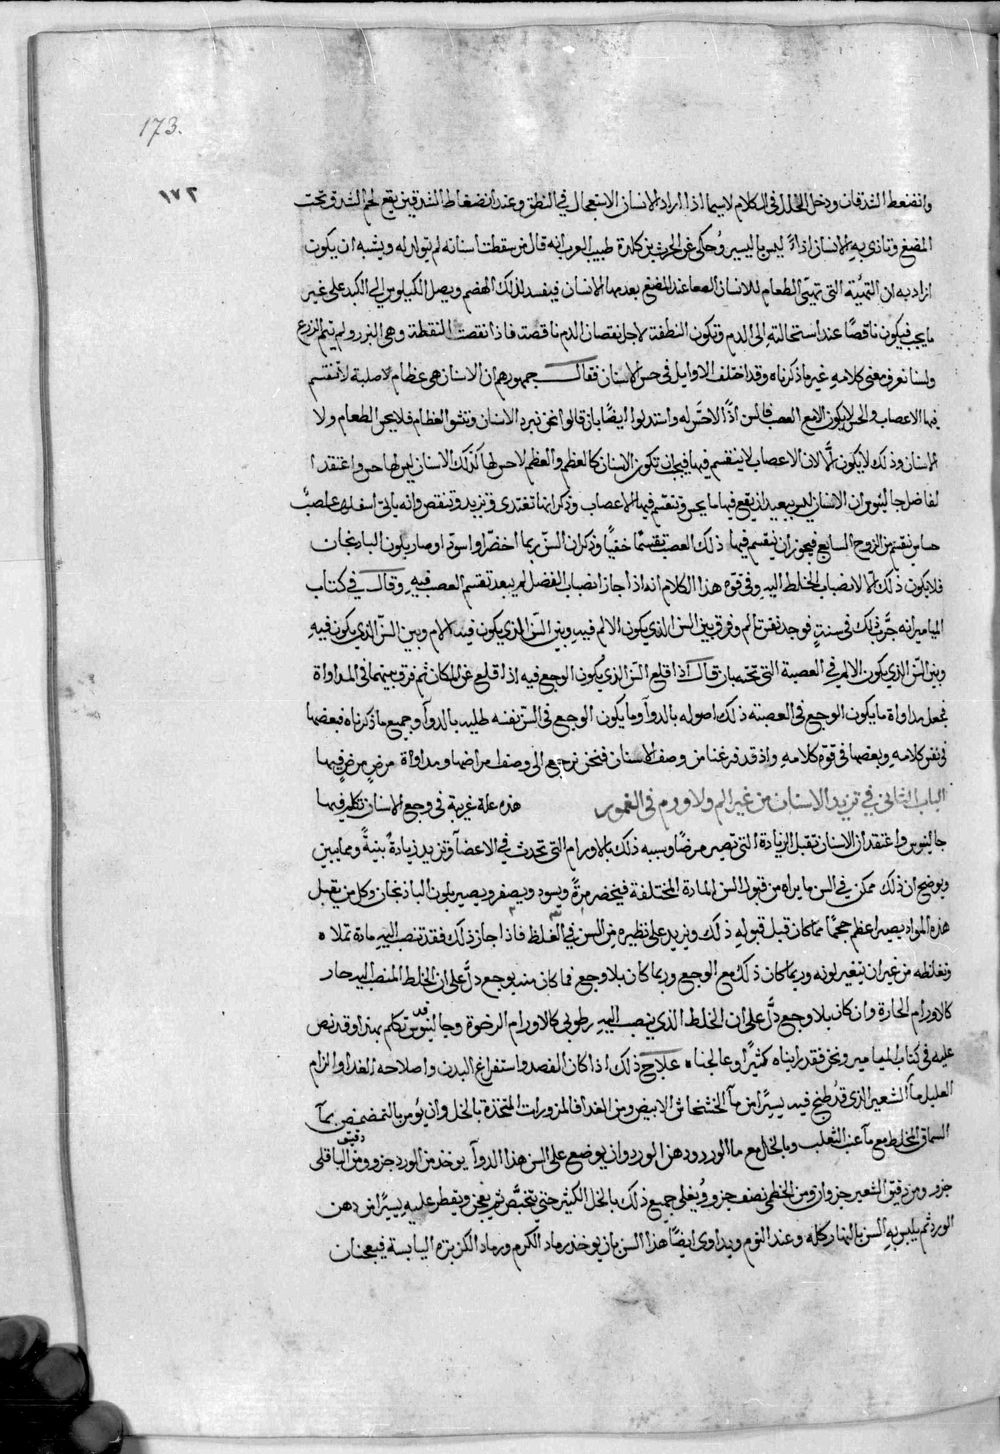 173.
١٧٣
وانضغط الشدقان ودخل الخلل فى الكلام لاسيما اذا اراد الانسان الاستعجال فى النطق وعند انضغاط الشدقين يقع لحم الشدق تحت
المضغ وتاذى به الانسان اذاً ليس باليسير وحكى عن الحرث بن كلدة طبيب العرب انه قال من سقطت اسنانه لم يولد له ويشبه ان يكون
اراد به ان التهيئة التى تهيى الطعام للانسان انما عند المضغ بعدمها الانسان فيفسد لذلك الهضم ويصل الكيلوس الى الكبد على غير
ما يجب فيكون ناقصًا عند استحالته الى الدم وتكون النطفة لاجل نقصان الدم ناقصة فاذا نقصت النطفة وهى البزر ولم يتم الزرع
ولسنا نعرف معنى كلامه غير ما ذكرناه وقد اختلف الاوايل فى حس الاسنان فقال جمهورهم ان الاسنان هى عظام لاصلبة لا تنقسم
فيها الاعصاب والحس لا يكون الا مع العصب فالسن اذًا لا حس له واستدلوا ايضًا بان قالوا نحن نبرد الاسنان وننشر العظام فلا يحس الطعام ولا
الاسنان وذلك لا يكون الا لان الاعصاب لا ينقسم فيها فيجب ان تكون الاسنان كالعظم والعظم لا حس لها كذلك الاسنان ليس لها حس واعتقد ا
لفاضل جالينوس ان الاسنان ليس ببعيد ان يقع فيها ما يحس وتنقسم فيها الاعصاب وذكر انها تغتدى وتزيد وتنقص وانه ياتى اسفلها عصب
حساس ينقسم من الزوج السابع فيجوز ان ينقسم فيها ذلك العصب تقسيمًا خفيًا وذكر ان السن ربما اخضرّ او اسودّ او صار بلون الباذنجان
فلا يكون ذلك الا لانصباب الخلط اليه وفى قوه هذا الكلام انه اذا جاز انصباب الفضل لم يبعد تقسم العصب فيه وقال فى كتاب
الميامير انه جرّب ذلك فى سنته فوجد نفس تالم وفرق بين السن الذى يكون الالم فيه وبين السن الذى يكون فيه الالم وبين السن الذى يكون فيه
وبين السن الذى يكون الالم فى العصبة التى تحته بان قال اذا قلع السن الذى يكون الوجع فيه اذا قلع عن المكان ثم فرق بينهما فى المداواة
فجعل مداواة ما يكون الوجع فى العصبه ذلك اصوله بالدوآ وما يكون الوجع فى السن نفسه طليه بالدوآ وجميع ما ذكرناه فبعضها
فى نفس كلامه وبعضها فى قوة كلامه واذ قد فرغنا من وصف الاسنان فنحن نرجع الى وصف امراضها ومداواة مرضٍ مرضٍ فيها
الباب الثانى فى تزيد الاسنان من غير الم ولا ورم فى الغمور هذه علة غريبة فى وجع الاسنان تكلم فيها
جالينوس واعتقد ان الاسنان تقبل الزيادة التى تصير مرضًا وسببه ذلك بالاورام التى تحدث فى الاعضآ وتزيد زيادةً بينةً ومما يبين
ويوضح ان ذلك ممكن فى السن ما يراه من قبول السن المادة المختلفة فيخضر مرةً ويسود ويصفر ويصير بلون الباذنجان وكل من يقبل
هذه المواد يصير اعظم حجمًا مما كان قبل قبوله ذلك ويزيد على نظيره من السن فى الغلظ فاذا جاز ذلك فقد تنصب اليه مادة تملاه
وتغلظه من غير ان يتغير لونه وربما كان ذلك مع الوجع وربما كان بلا وجع فما كان منه بوجع دلّ على ان الخلط المنصب اليه حار
كالاورام الحارة وان كان بلا وجع دلّ على ان الخلط الذى ينصب اليه رطوبى كالاورام الرخوة وجالينوس قد تكلم بهذا وقد نص
عليه فى كتاب الميامير ونحن فقد رايناه كثيرًا وعالجناه علاج ذلك اذا كان الفصد واستفراغ البدن واصلاحه الغدا والزام
العليل مآ الشعير الذى قد طبخ فيه يسيرًا من مآ الخشخاش الابيض ومن الغدا فالمزورات المتخذة بالخل وان يؤمن بالتمضمض بمآ
السماق المخلط مع مآ عنب الثعلب وبالخل مع ما الورد ودهن الورد وان يوضع على السن هذا الدوآ يوخذ من الورد جزو ومن دقيق الباقلى
جزو ومن دقيق الشعير جزوان ومن الخطمى نصف جزو ويُغلى جميع ذلك بالخل الكثير حتى يتخبّص ثم يعجن ويقطر عليه يسيرًا من دهن
الورد ثم يلبس به السن بالنهار كله وعند النوم ويداوى ايضًا هذا السن بان يوخذ رماد الكرم ورماد الكزبزه اليابسة فيعجنان